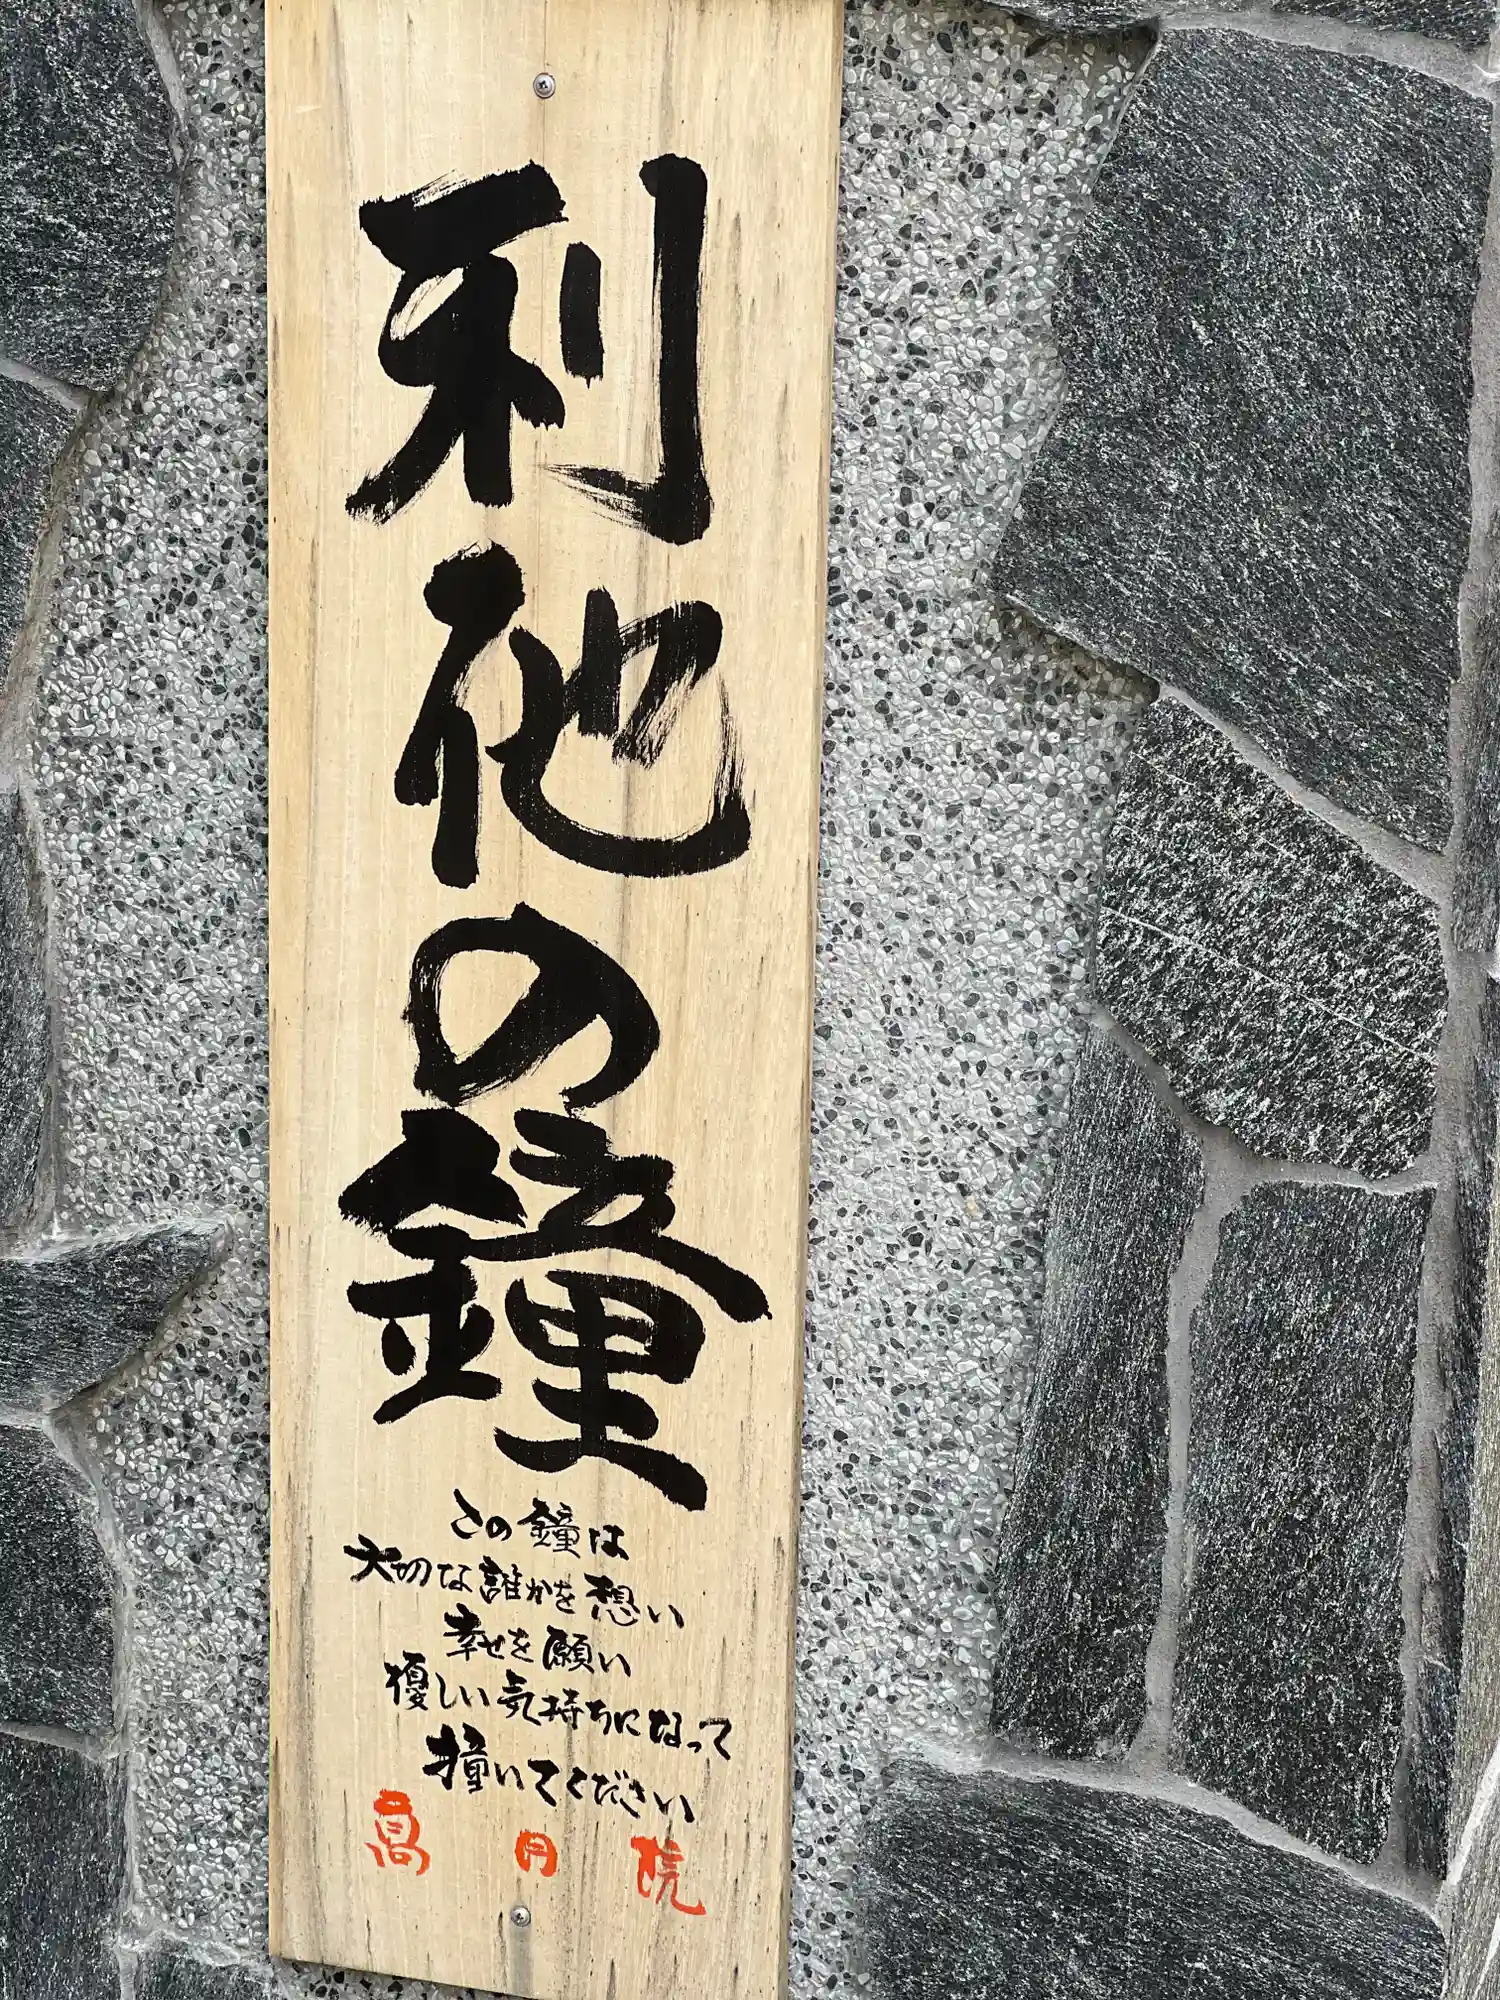 利他の鐘
この鐘は
大切な誰かを想い
幸せを願い
優しい気持ちになって
撞いてください
高円院